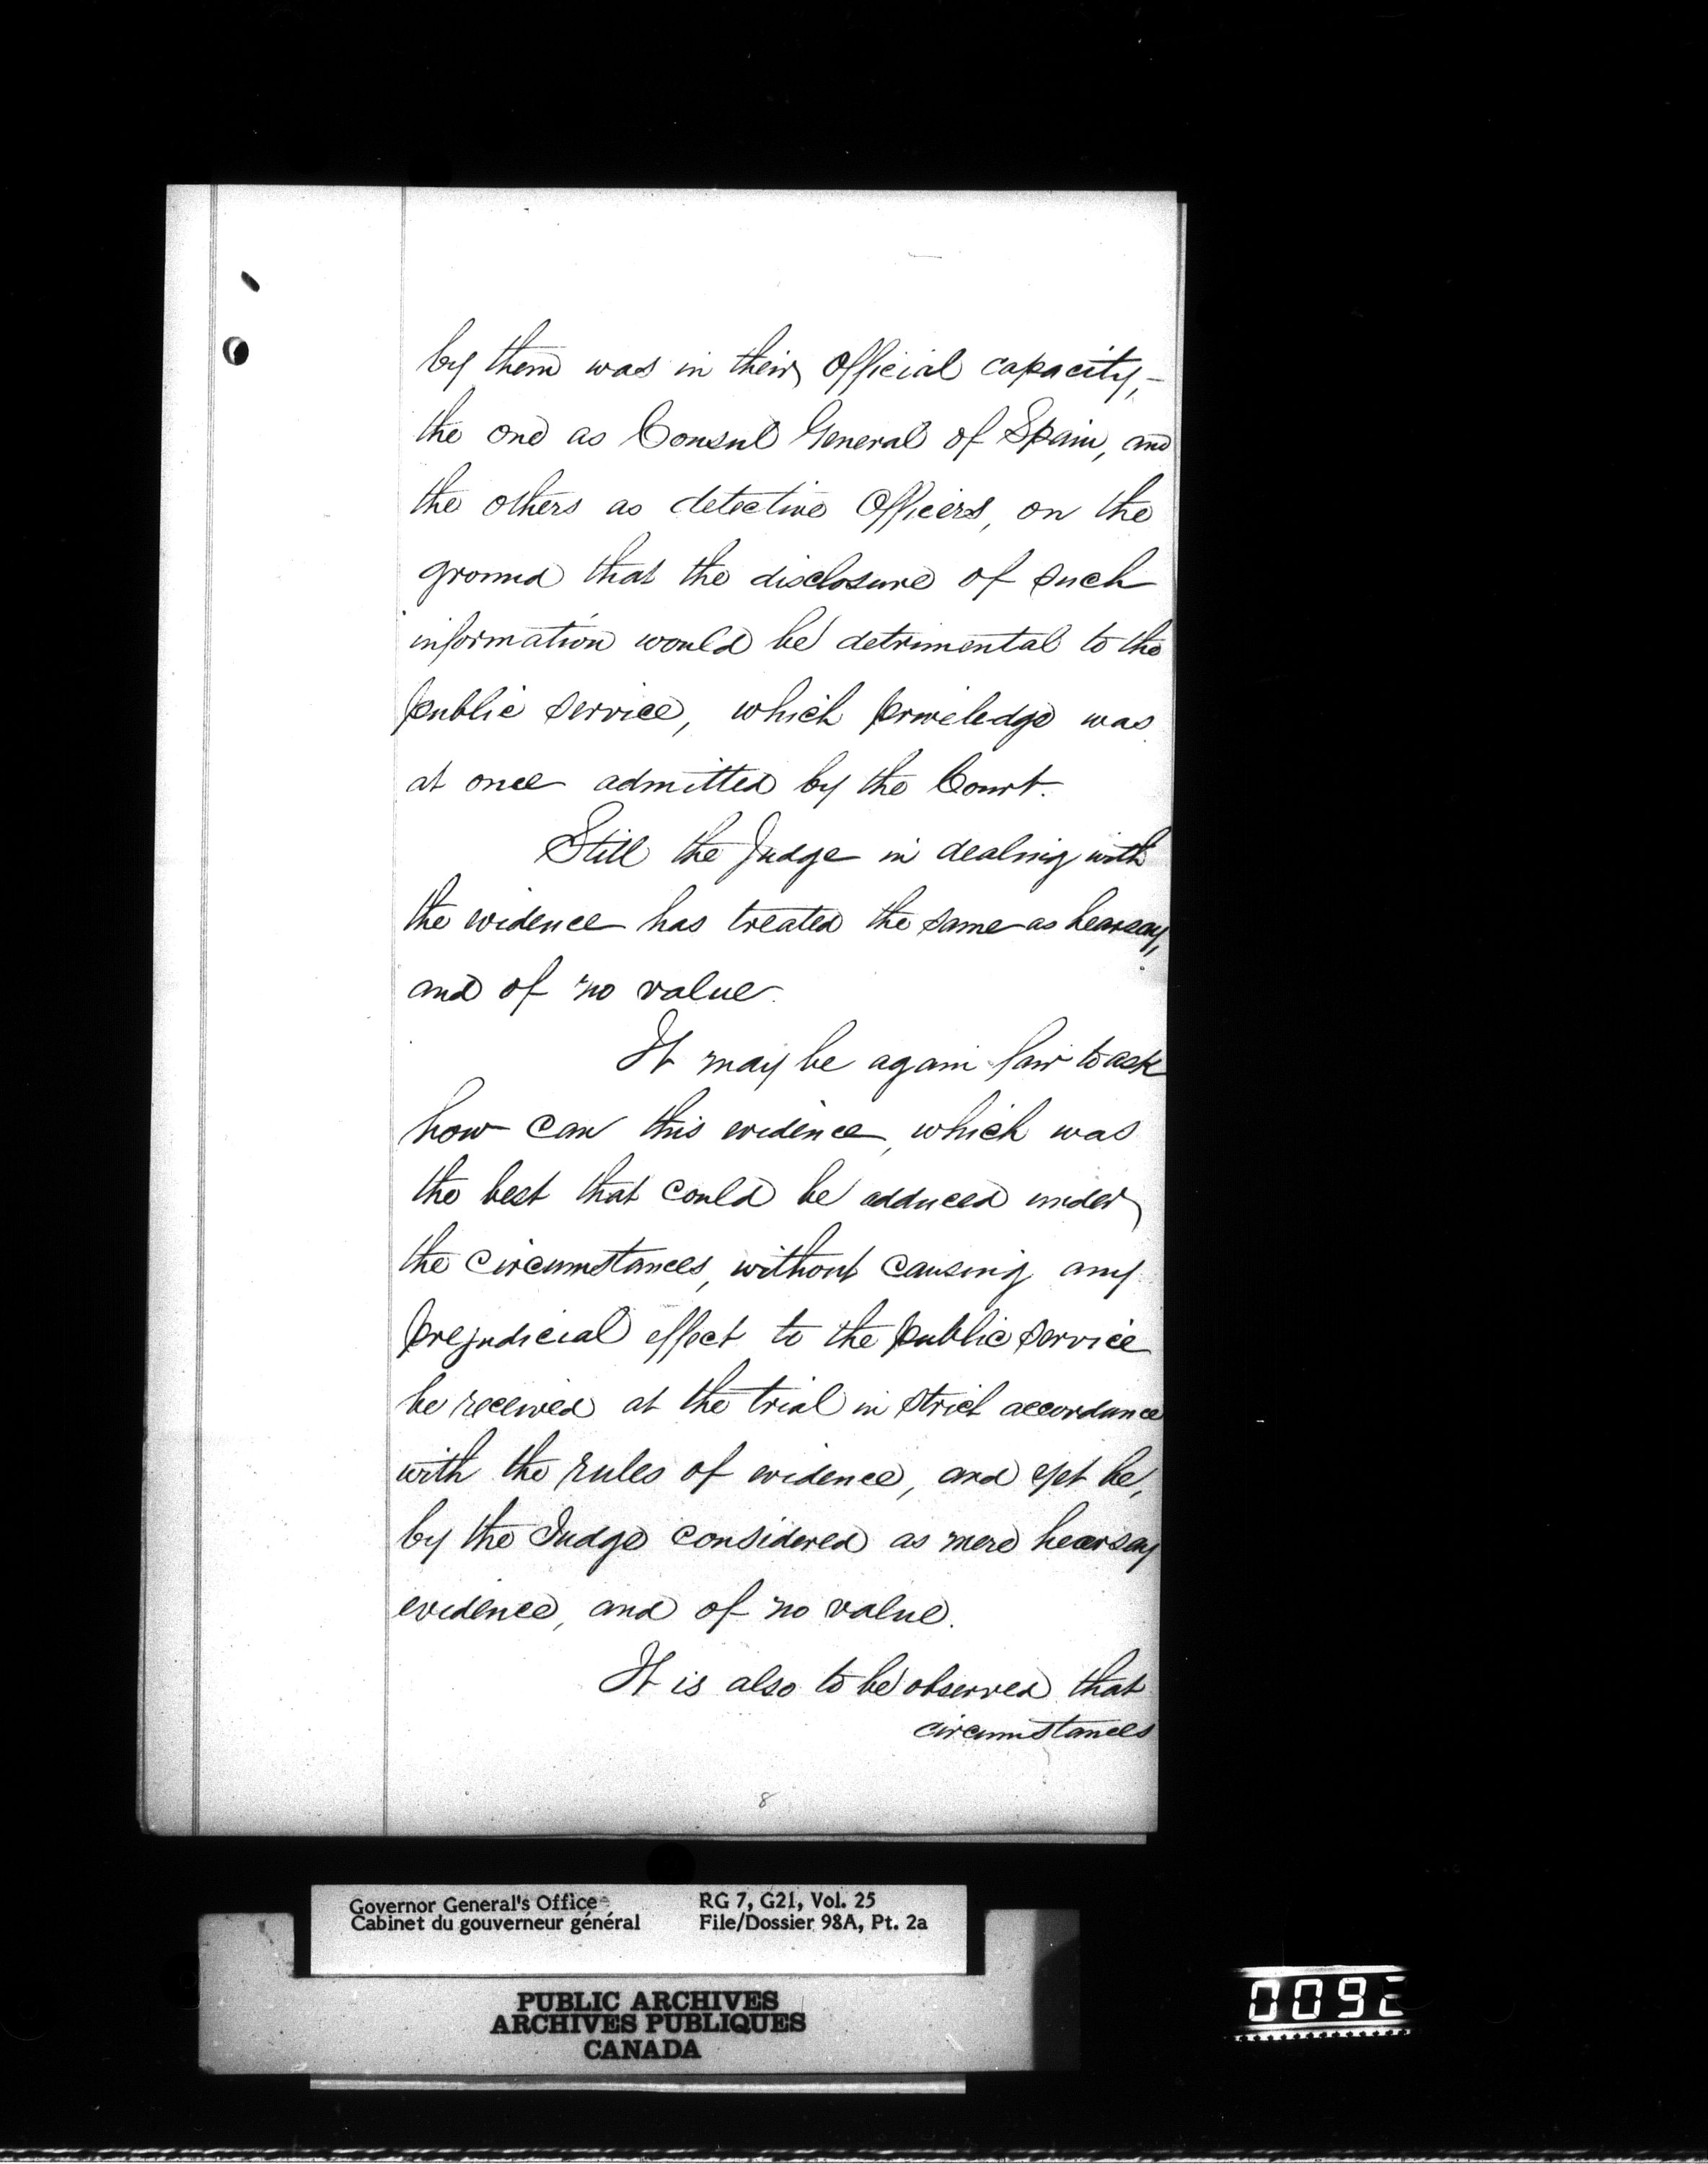 by them was in their Official capacity,-
the one as Consul General of Spain, and
the others as detective Officers, on the
ground that the disclosure of such
information would be detrimental to the
public service, which priviledge was
at once admitted by the Court.
Still the Judge in dealing with
the evidence has treated the same as hearsay,
and of no value.
It may be again fair to ask
how can this evidence, which was
the best that could be adduced under
the circumstances, without causing any
prejudicial effect to the public service
be received at the trial in strict accordance
with the rules of evidence, and yet be,
by the Judge considered as mere hearsay
evidence, and of no value.
It is also to be observed that
circumstances
8
Governor General's Office RG 7, G21, Vol. 25
Cabinet du gouverneur général File/Dossier 98A, Pt. 2a
PUBLIC ARCHIVES
ARCHIVES PUBLIQUES
CANADA